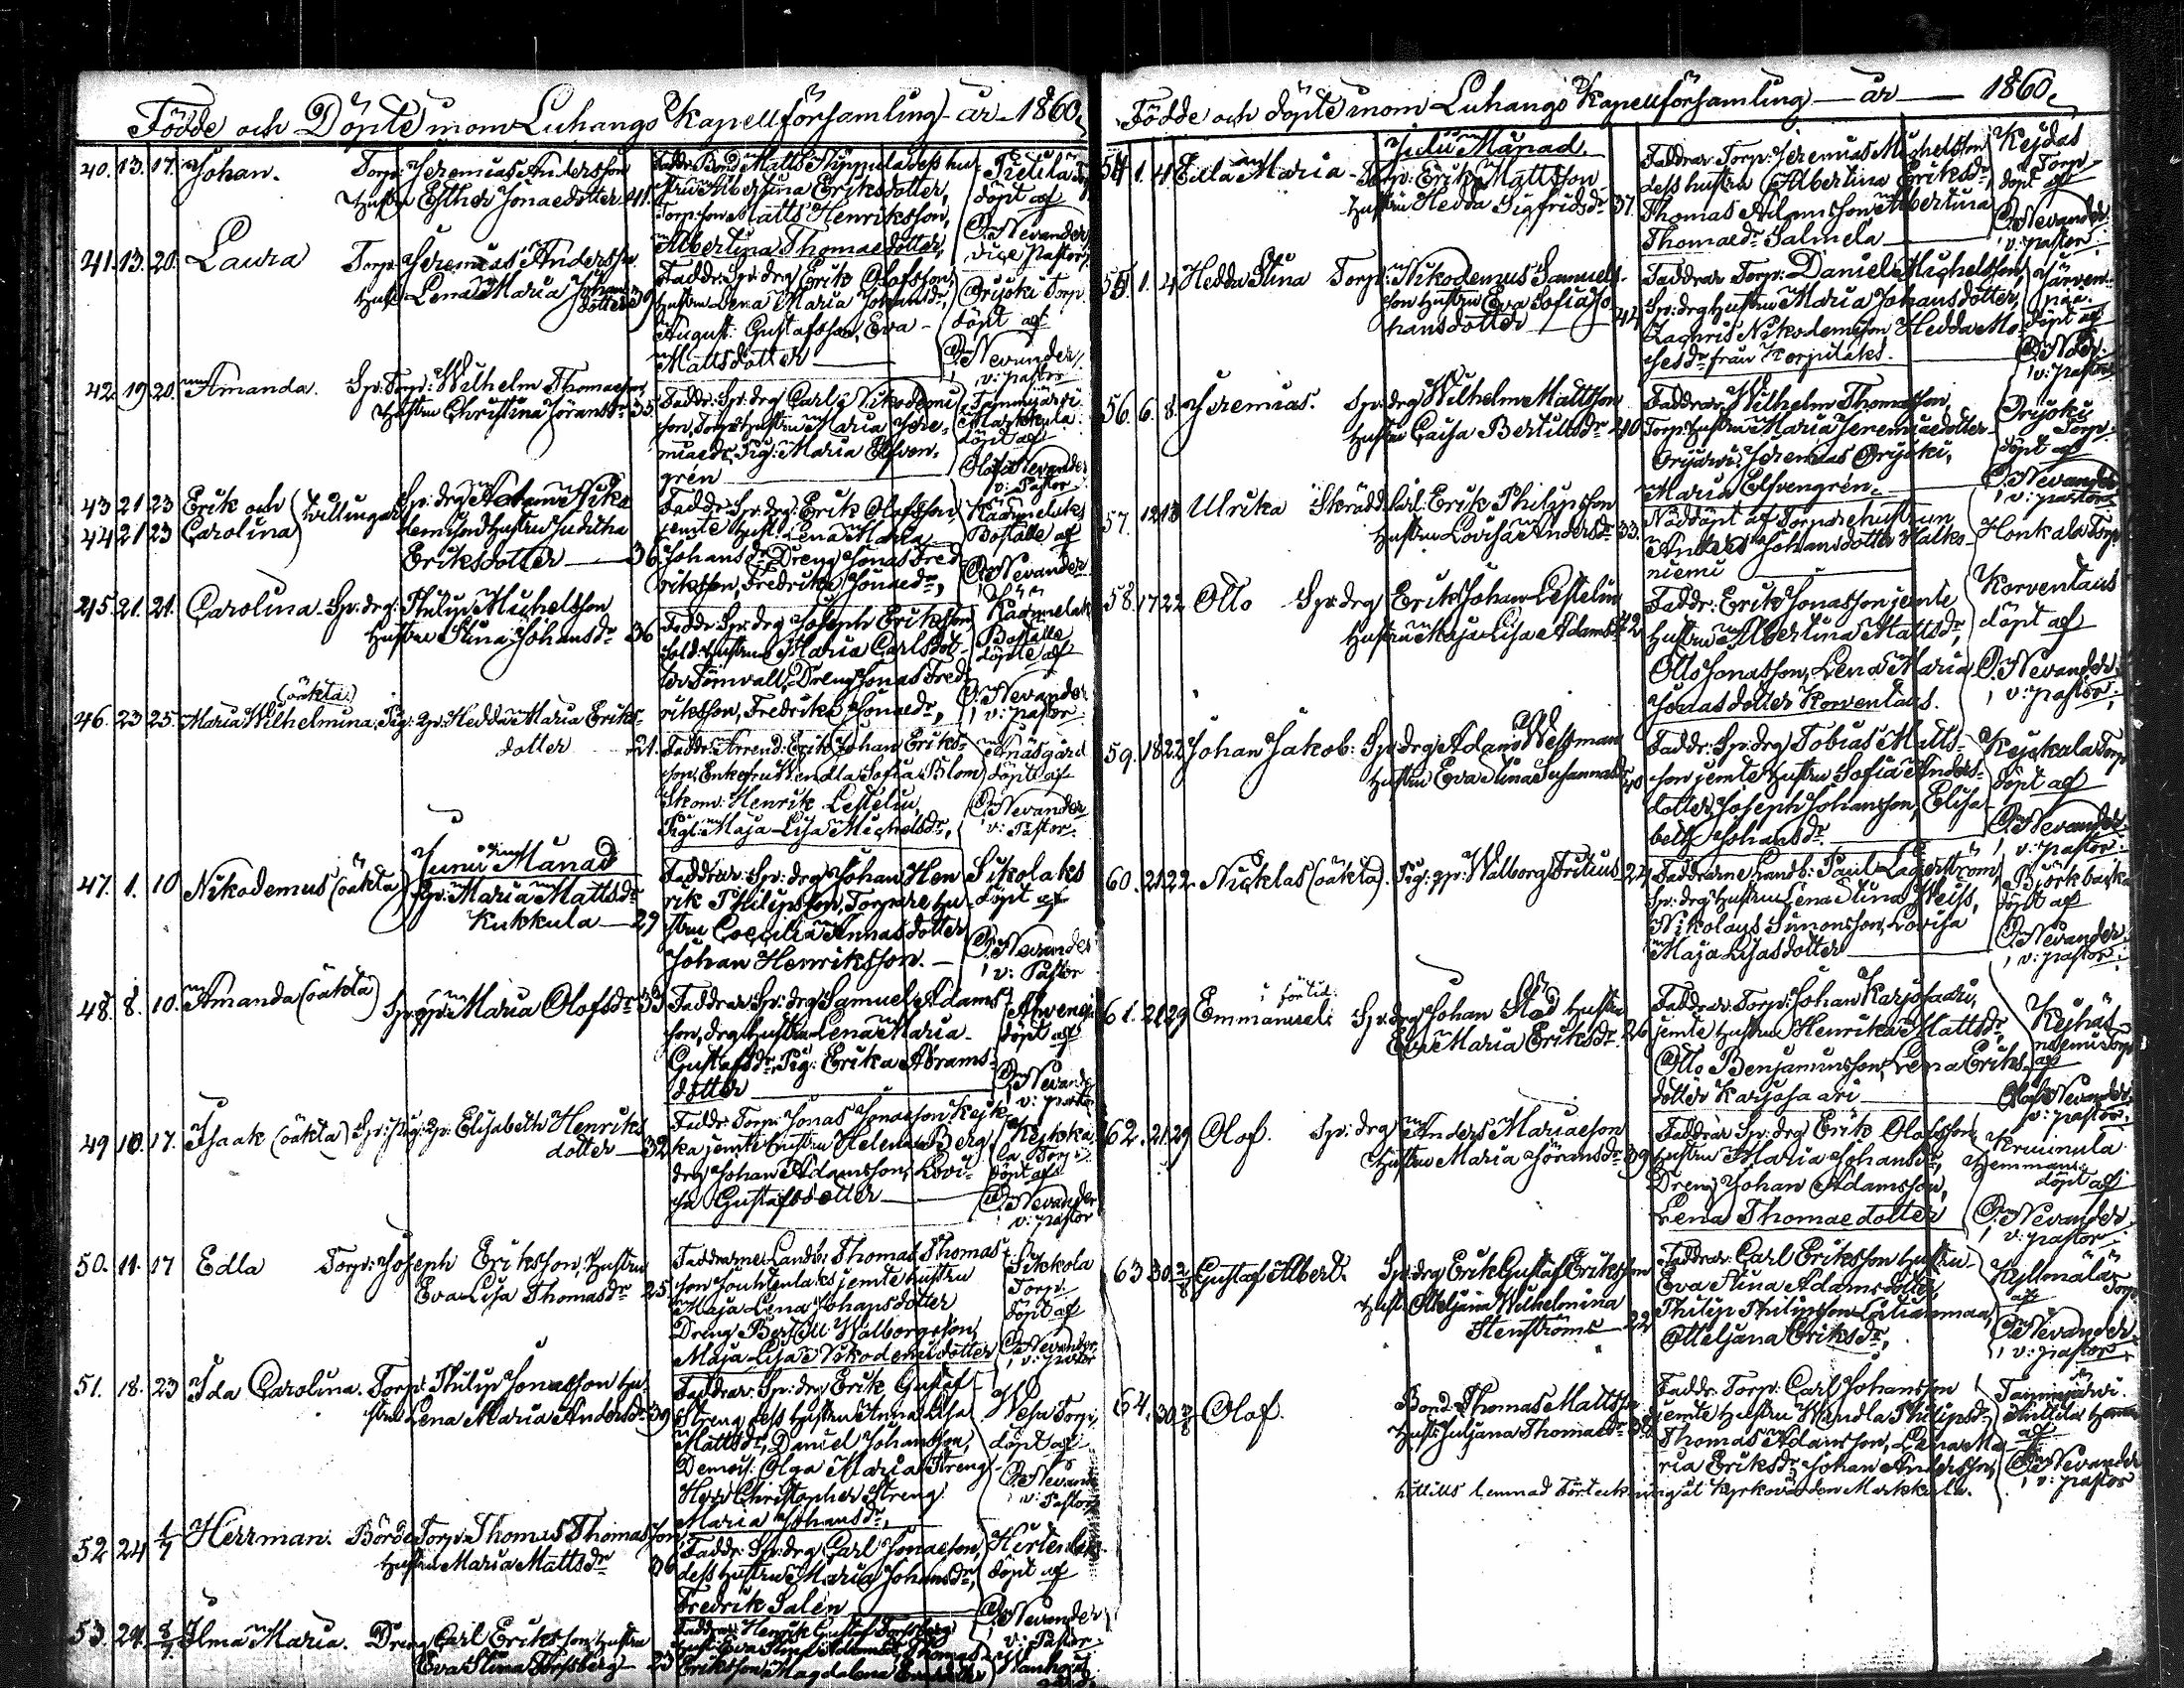 Födde och Döpte inom Luhango Kapellförsamling år 1860.
40. 13. 17. Johan. Torp: Jeremias Andersson
Hustru Esther Jonaedotter 41.
Faddr: Bond Matts dess hu-
stru Albertina Eriksdotter,
Torp:son Matts Henriksson,
Albertina Thomaedotter,
döpt af
O. Nevander
vice Pastor
41. 13. 20. Laura Torp: Jeremias Andersson
Hust: Lena Maria Johans
dotter 39
Faddr: Sp: drg Erik Olofsson,
Hustru Lena Maria Johansdr,
August Gustafsson, Eva
Mattsdotter
Orijoki Torp
döpt af
O. Nevander
v: pastor
42. 19 20. Amanda. Sp: Torp: Wilhelm Thomaeson
Hustru Christina Göransdr 35.
Faddr: Sp: drg Carl Nikodemi
son, Torp: Hustru Maria Jere-
miaedr, Pig: Maria Elfven-
grén
Tammijärfi
Markkula
döpt af
Olof Nevander
v: Pastor
43 21 23 Erik och
44 21 23 Carolina
tvillingar
Sp: drg Adam Niko
demison Hustru Juditha
Eriksdotter 36
Faddr: Sp: drg: Erik Olofsson
jemte Hust: Lena Maria
Johansdr Dreng Jonas Fred
riksson, Fredrika Jonaedr,
Boställe af
O. Nevander
45. 21. 21. Carolina. Sp: drg: Philip Michelsson
Hustru Stina Johansdr 36
Faddr: Sp: drg Joseph Eriksson
Sold: Hustru Maria Carlsdot-
ter Dreng Jonas Fred
riksson, Fredrika Jonaedr,
Boställe
döpte af
O. Nevander
v: pastor
46. 23 25. Maria Wilhelmina (oäkta) Pig: Qp: Hedda Maria Eriks-
dotter 21.
Faddr: Arrend: Erik Johan Eriks-
son, Enkefru Wendla Sofia Blom
Skom: Henrik Lestelin,
Pigl: Maja Lisa Michelsdr,
döpt af
O. Nevander
v: Pastor
Junii Månad
47. 1. 10 Nikodemus (oäkta) Qp: Maria Mattsdr
Kukkula 29
Faddrar: Sp: drg Johan Hen
rik Philipsson, Torpare hu-
stru Coecilia Annasdotter
Johan Henriksson.
Sikolaks
döpt af
O. Nevander
v: Pastor
48. 8. 10. Amanda (oäkta) Sp: qp: Maria Olofsdr 33
Faddrar: Sp: drg Samuel Adams-
son, drg Hustru Lena Maria
Gustafsdr Pig: Erika Abrams-
dotter
döpt af
O. Nevander
v: pastor
49 10. 17. Isaak (oäkta) Sp: pig: Qp: Elisabeth Henriks
dotter 32
Faddr: Torp: Jonas Jonaeson Kejk
ka jemte Hustru Helena Berg
drg Johan Adamsson, Lovi-
sa Gustafsdotter
Kejkka
la Torp:
döpt af
O. Nevander
v: pastor
50. 11. 17 Edla Torp: Joseph Eriksson, Hustru
Eva Lisa Thomasdr 25
Faddrarne Landb: Thomas Thomas
son Jouhtenlaks jemte hustru
Maja Lena Johansdotter
Dreng Bertill Walborgson,
Maja Lisa Nikodemidotter
Sikkola
Torp
döpt af
O. Nevander
v: pastor
51. 18. 23 Ida Carolina. Torp: Philip Jonasson Hu-
stru Lena Maria Andersdr 39
Faddrar: Sp: drg Erik Gustaf
Streng dess Hustru Anna Lisa
Mattsdr, Daniel Johansson,
Demois: Olga Maria Streng
Herr Christopher Streng
Maria Johansdr,
Wesa Torp,
döpt af
O. Nevander
v: Pastor
52. 24 1/7 Herrman. Torp: Thomas Thomasson
Hustru Maria Mattsdr 36
Faddr: Sp: drg Carl Jonaeson,
dess Hustru Maria Johansdr,
Fredrik Salén
döpt af
O. Nevander
v: Pastor
53. 24. 8/7 Ilma Maria. Dreng Carl Eriksson Hustru
Eva Stina Forssberg 23
Faddrar Henrik Gustaf Forssberg
Eriksson Magdalena
Födde och döpte inom Luhango Kapellförsamling år 1860.
Julii Månad.
54 1. 4 Edla Maria Torp: Erik Mattsson
Hustru Hedda Sigfridsdr 37.
Faddrar Torp: Jeremias Michelsson
dess hustru Albertina Eriksdr,
Thomas Adamsson Albertina
Thomaedr Salmela
Kejdas
Torp
döpt af
O. Nevander
v: pastor
55. 1. 4 Hedda Stina Torp: Nikodemus Samuels-
son Hustru Eva Sofia Jo
hansdotter 44
Faddrar Torp: Daniel Michelsson,
Sp: drg Hustru Maria Johansdotter,
Zachris Nikodemison Hedda Mo-
sesdr från Korpilaks.
Järven-
pää.
döpt af
v: pastor
56. 6. 8. Jeremias. Sp: drg Wilhelm Mattsson
Hustru Caisa Bertillsdr 40
Faddrar: Wilhelm Thomasson,
Torp: Hustru Maria Jeremiaedotter
Jeremias Orijoki,
Maria Elfvengrén
Orijoki
Torp:
döpt af
O. Nevander
v: pastor
57. 12 13 Ulrika Skrädd: Erik Philipsson
Hustru Lovisa Andersdr 33.
Nöddöpt af Torparehustrun
Johansdotter Halko-
niemi
Honkala Torp
58. 17 22 Otto Sp: drg Erik Johan Lestelin
Hustru Maja Lisa Adamsdr 42
Faddr: Erik Jonasson jemte
hustru Albertina Mattsdr,
Otto Jonasson, Lena Maria
Jonasdotter Korventaus.
Korventaus
döpt af
O. Nevander
v: pastor
59. 18 22 Johan Jakob: Sp: drg Adam Westman
Hustru Eva Stina Susannasdr 40
Faddr: Sp: drg Tobias Matts-
son jemte Hustru Sofia Anders-
dotter, Joseph Johansson, Elisa-
beth Johansdr
Torp
döpt af
O. Nevander
v: pastor
60. 21 22. Nicklas (oäkta). Pig: qp: Walborg Fritius 24
Faddrarne Landb: Paul Lagerström,
Sp: drg Hustru Lena Stina Weiss,
Nikolaus Simonsson, Lovisa
Maja Lisasdotter
Björkbacka
döpt af
O. Nevander
v: pastor
61. 21 29 Emmanuel: Sp: drg Johan Stod Hustru
Eva Maria Eriksdr 26
Faddrar Torp: Johan Karjosaari,
jemte Hustru Henrika Mattsdr,
Otto Benjaminsson, Lena Eriks
dotter Karjosaari
niemi Torp
af
Olof Nevander
v: pastor
62. 21 29 Olof. Sp: drg Anders Mariaeson
Hustru Maria Göransdr 39
Faddrar Sp: drg Erik Olofsson
Hustru Maria Johansdr,
Dreng Johan Adamsson,
Lena Thomaedotter
Hemmans
döpt af
O. Nevander
v: pastor
63 30 2/8 Gustaf Albert. Sp: drg Erik Gustaf Eriksson
Hust: Otteljana Wilhelmina
Stenströms 22
Faddrar: Carl Eriksson Hustru
Eva Stina Adamsdotter,
Philip Philipsson
Otteljana Eriksdr,
Torp
af
O. Nevander
v: pastor
64. 30 3/8 Olof. Bond Thomas Mattsson
Hust: Juljana Thomaedr 38
Faddr: Torp: Carl Johansson
jemte Hustru Wendla Philipsdr
Thomas Adamsson, Lena Ma
ria Eriksdr Johan Andersson,
Tammijärvi
af
O. Nevander
v: pastor
hittills lemnad Förteckning åt Kyrkovärden Markkula.